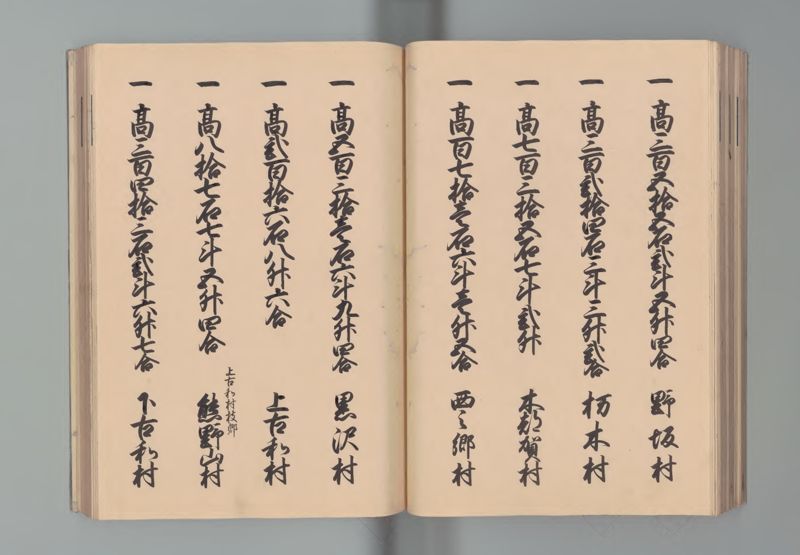 一 高三百五拾五石弐斗五升四合 野坂村
一 高三百弐拾四石三斗三升弐合 栃木村
一 高七百三拾五石七斗弐升 木郷賀村
一 高百七拾壱石六斗壱升五合 西之郷村
一 高五百三拾壱石六斗九升四合 黒沢村
一 高弐百拾六石八升六合 上古和村
上古和村枝郷
一 高八拾七石七斗五升四合 熊野山村
一 高三百四拾三石弐斗六升七合 下古和村